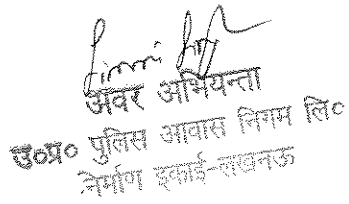 अवर अभियन्ता
उ०प्र० पुलिस आवास निगम लि०
निर्माण इकाई-लखनऊ